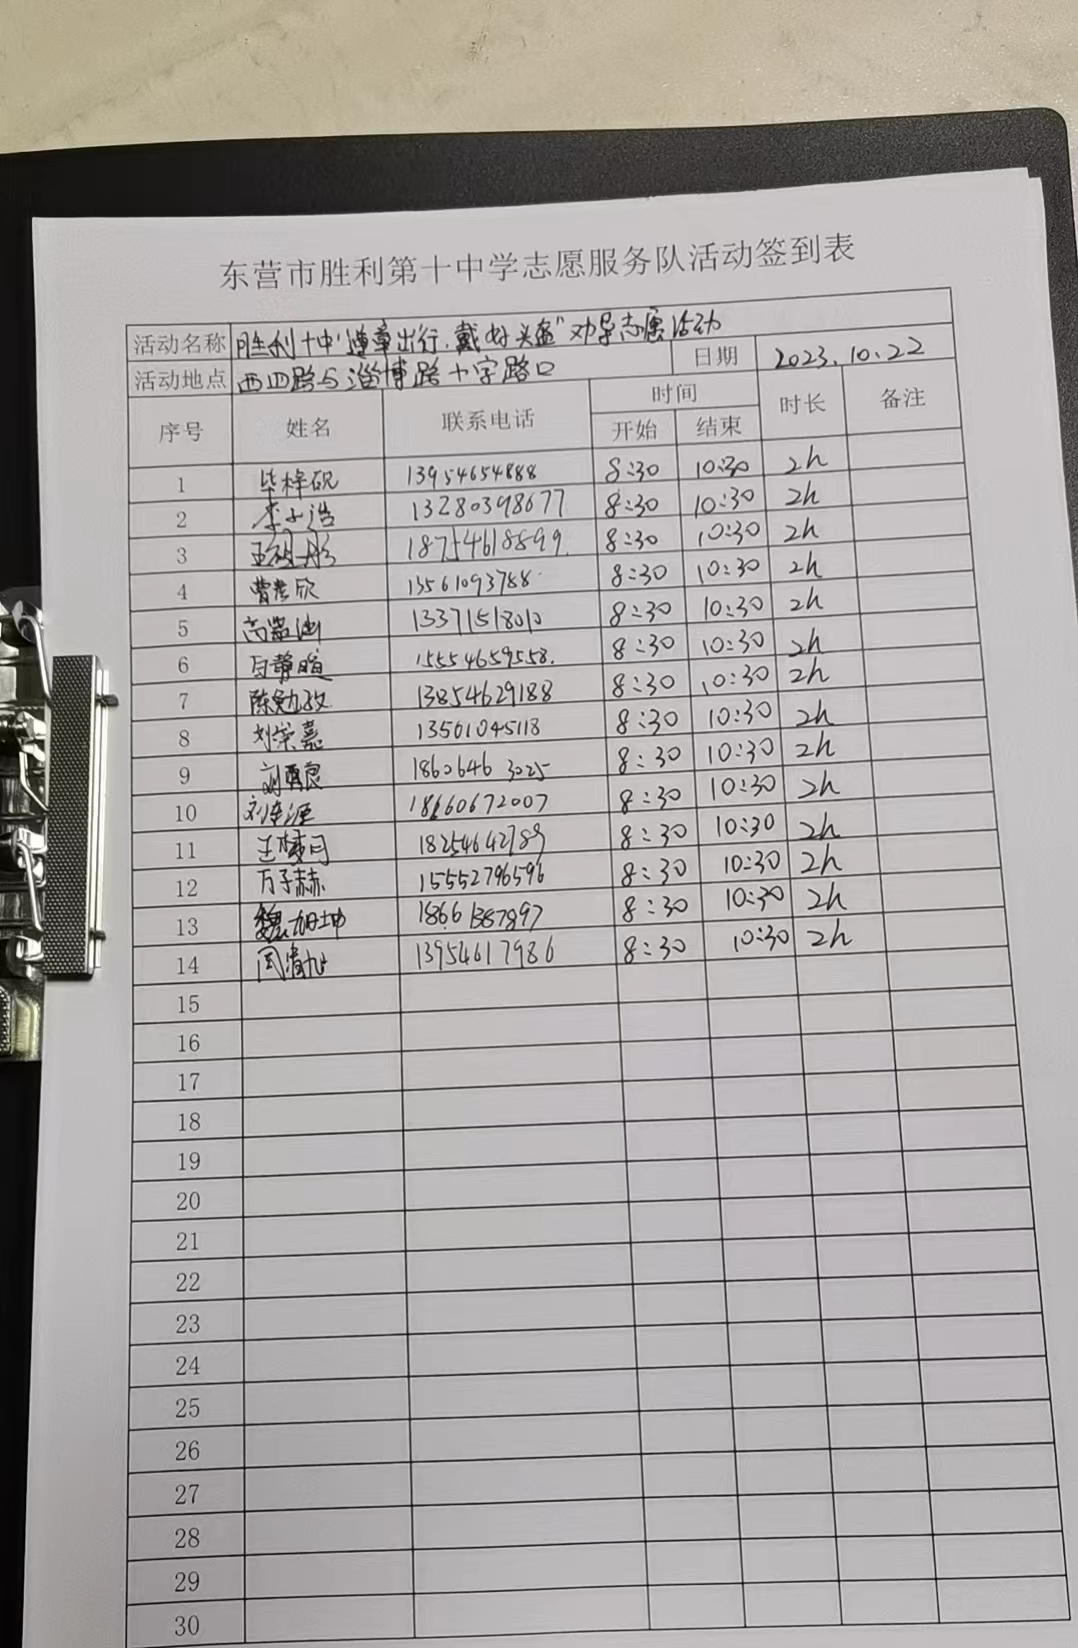 东营市胜利第十中学志愿服务队活动签到表
活动名称 胜利十中"遵章出行,戴好头盔"劝导志愿活动
活动地点 西四路与淄博路十字路口 日期 2023.10.22
序号 姓名 联系电话 时间 时长 备注
开始 结束
1 毕梓砚 13954654888 8:30 10:30 2h
2 李小浩 13280398677 8:30 10:30 2h
3 18754618899 8:30 10:30 2h
4 曹彦欣 13561093788 8:30 10:30 2h
5 13371518010 8:30 10:30 2h
6 白静暄 15554659558. 8:30 10:30 2h
7 陈勉孜 13854629188 8:30 10:30 2h
8 刘荣嘉 13561045118 8:30 10:30 2h
9 18606463025 8:30 10:30 2h
10 18660672007 8:30 10:30 2h
11 王梦月 18254642789 8:30 10:30 2h
12 万子赫 15552796596 8:30 10:30 2h
13 魏加坤 18661387897 8:30 10:30 2h
14 13954617986 8:30 10:30 2h
15
16
17
18
19
20
21
22
23
24
25
26
27
28
29
30